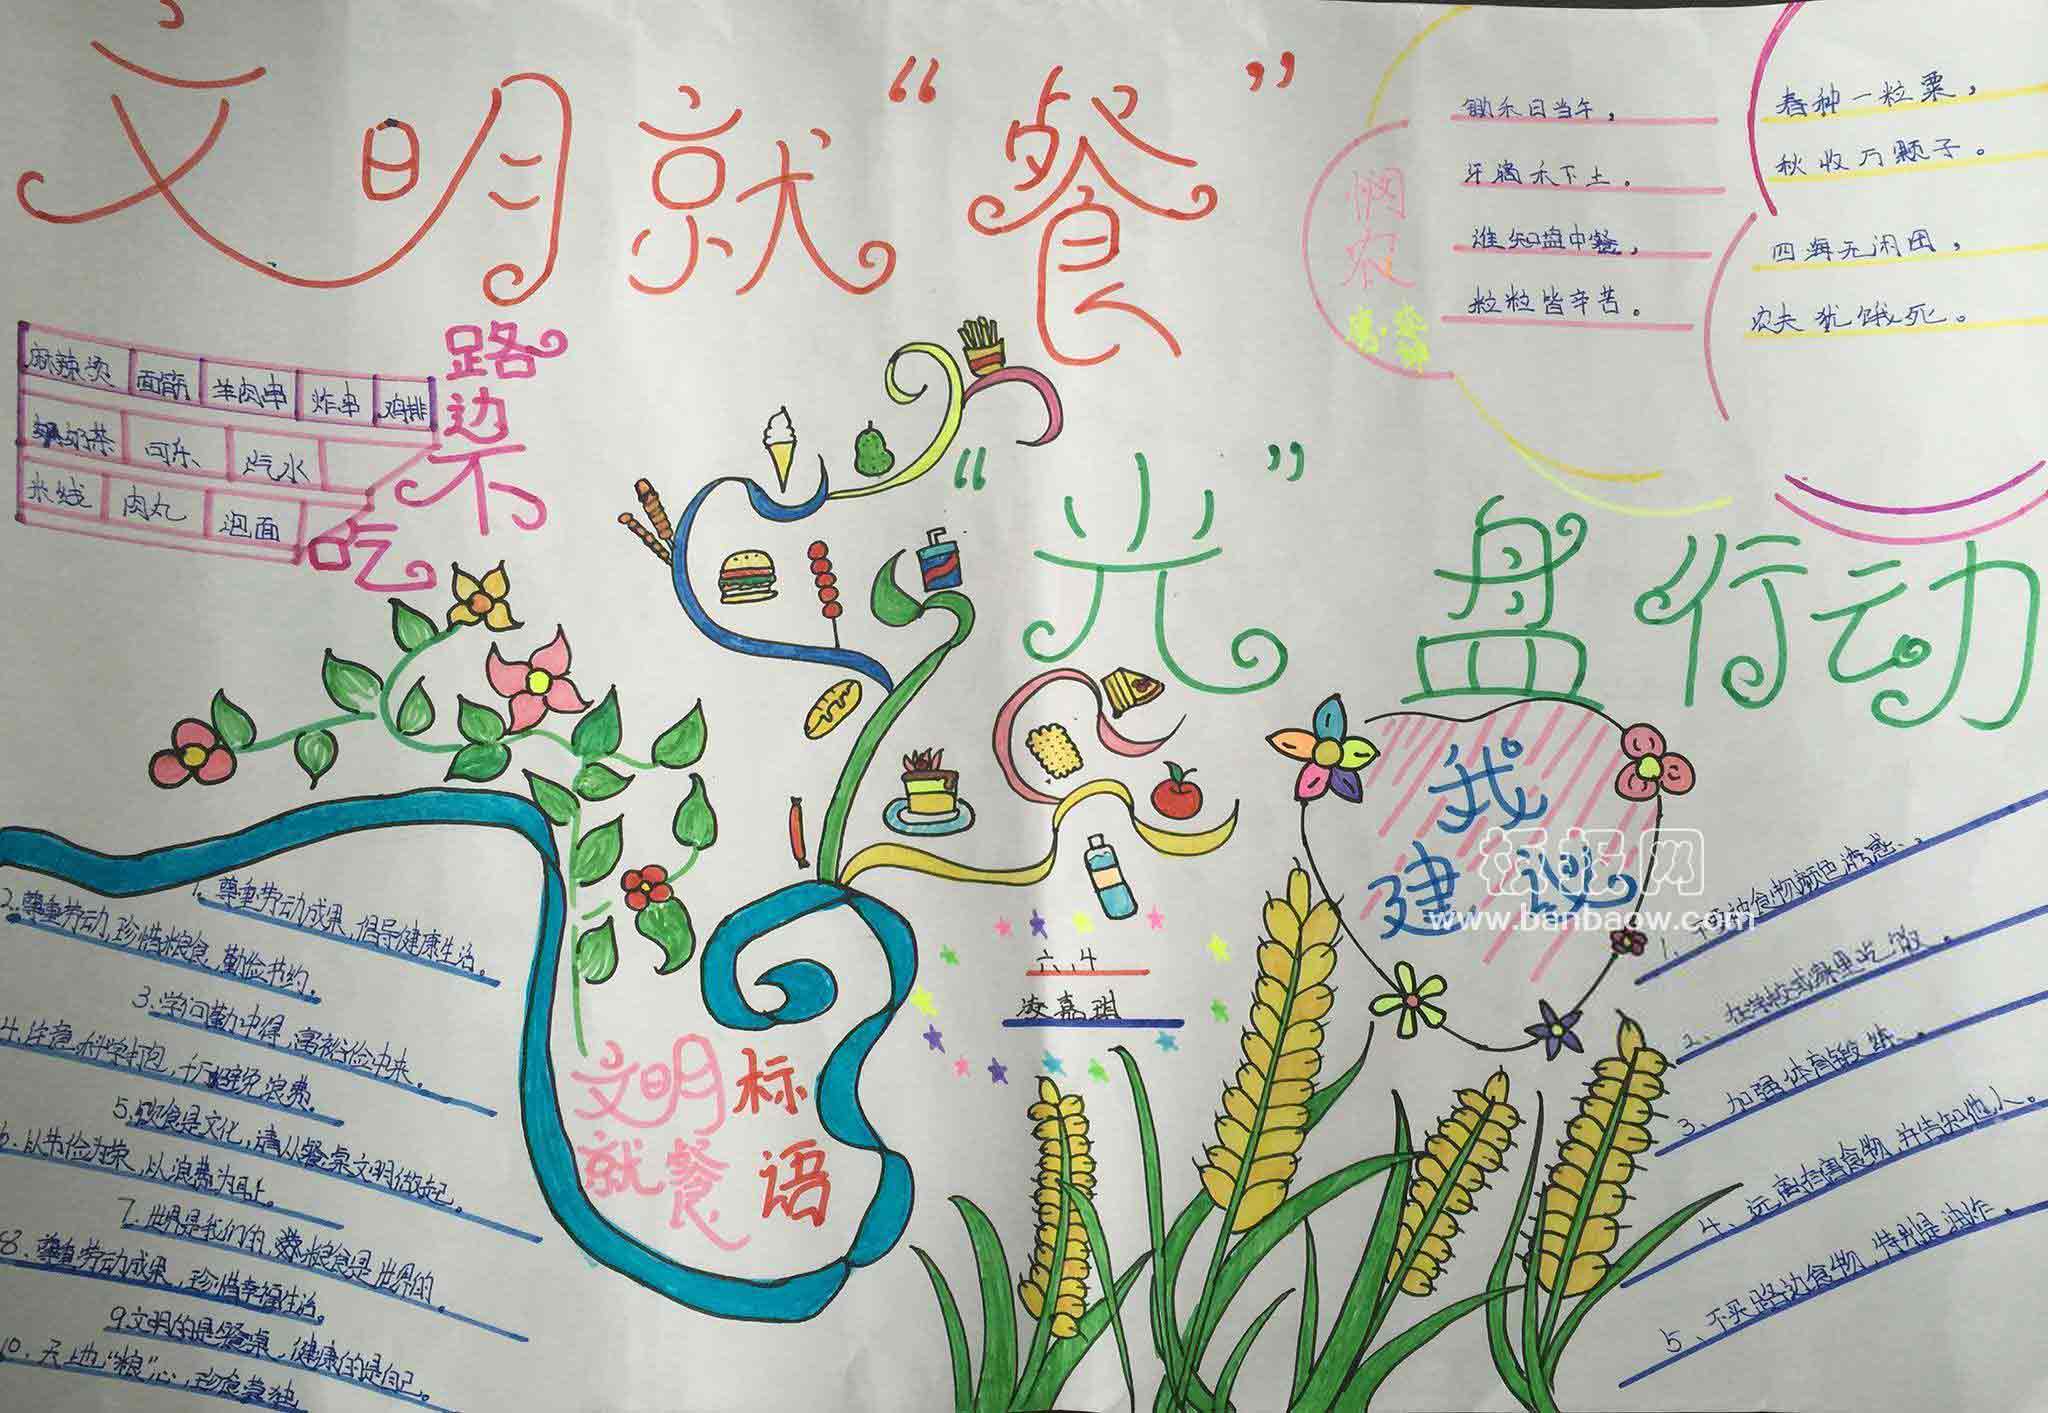 文明就“餐”
“光”盘行动
路边不吃
麻辣烫 面筋 羊肉串 炸串 鸡排
奶茶 可乐 汽水
米线 肉丸 泡面
悯农
锄禾日当午，
汗滴禾下土。
谁知盘中餐，
粒粒皆辛苦。
春种一粒粟，
秋收万颗子。
四海无闲田，
农夫犹饿死。
文明就餐标语
1. 尊重劳动成果，倡导健康生活。
2. 尊重劳动，珍惜粮食，勤俭节约。
3. 学问勤中得，富裕俭中来。
4. 注意 打包，千万避免浪费。
5. 饮食是文化，请从餐桌文明做起。
6. 以节俭为荣，以浪费为耻。
7. 世界是我们的，粮食是世界的。
8. 尊重劳动成果，珍惜幸福生活。
9. 文明的是餐桌，健康的是自己。
10. 天地“粮”心，珍食莫独
六、4
凌嘉琪
我建议
1、不要被食物颜色诱惑、
2、在学校或家里吃饭。
3、加强体育锻炼、
4、远离有害食物，并告知他人。
5、不买路边食物，特别是油炸。
板报网
www.banbaow.com